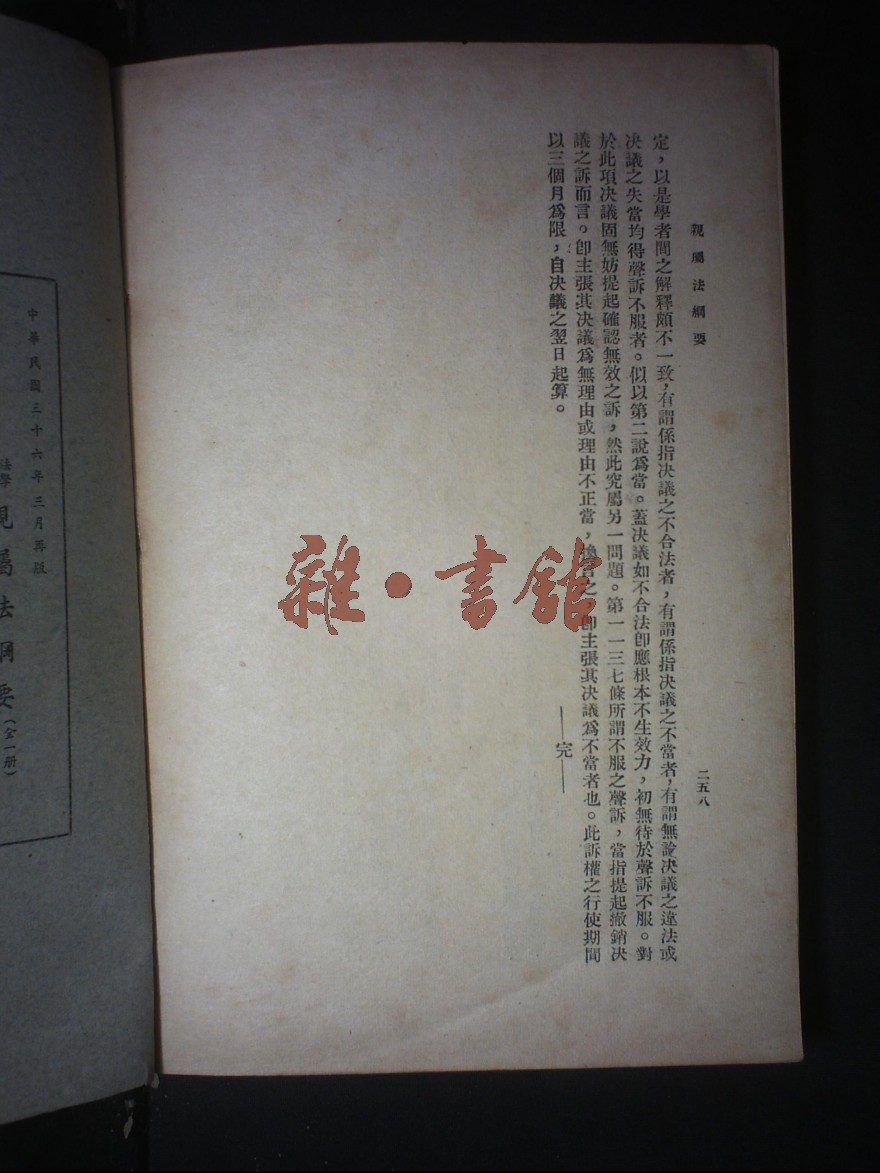 親屬法綱要
二五八
定，以是學者間之解釋頗不一致，有謂係指決議之不合法者，有謂係指決議之不當者，有謂無論決議之違法或
決議之失當均得聲訴不服者。似以第二說爲當。蓋決議如不合法卽應根本不生效力，初無待於聲訴不服。對
於此項決議固無妨提起確認無效之訴，然此究屬另一問題。第一一三七條所謂不服之聲訴，當指提起撤銷決
議之訴而言。卽主張其決議爲無理由或理由不正當，換言之，卽主張其決議爲不當者也。此訴權之行使期間
以三個月爲限，自決議之翌日起算。
——完——
雜·書館
中華民國三十六年三月再版
法學
親屬法綱要（全一册）